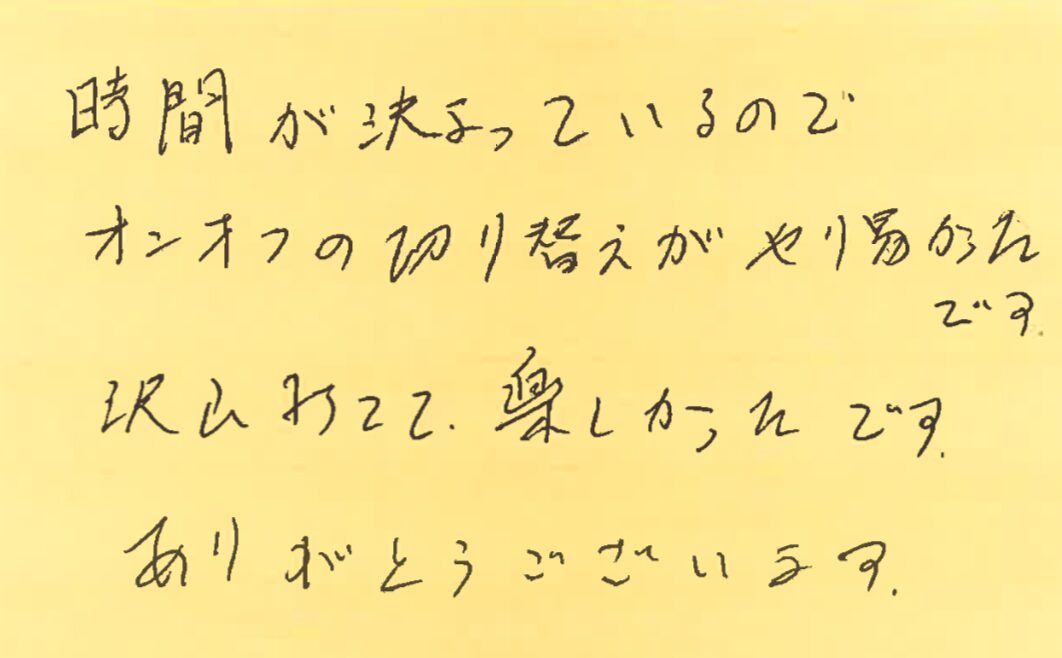 時間が決まっているので
オンオフの切り替えがやり易かった
です.
沢山打てて.楽しかったです.
ありがとうございます.